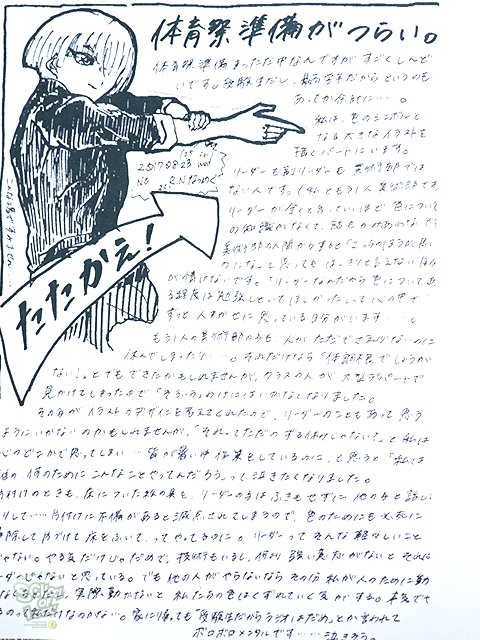 体育祭準備がつらい。
体育祭準備まっただ中なんですがすごくしんど
いです。受験生だし、最高学年だからというのも
あってか余計に…。
私は、色のシンボルと
なる大きなイラストを
描くパートにいます。
リーダーも副リーダーも美術部では
ない人です。(私ともう1人美術部です
リーダーが全くと言っていいほど色について
の知識がなくて、
美術部の人間からすると「こっちのほうが良い
のにな」と思っても はっきりと言えない自分
が情けないです。「リーダーなんだから色についてあ
る程度は勉強しといてほしかった」って心の中で
ずっと人まかせに思っている自分がいます……。
もう1人の美術部の子も、人がただでさえ少ないのに
休んでしまったり…。それだけなら「体調不良でしょうが
ない」とでもできたかもしれませんが、クラスの人が大型デパートで
見かけてしまったので「そういう」わけにはいかなくなりました。
その方がイラストのデザインを考えてくれたので、リーダーのこともあって思う
ようにいかないのかもしれませんが、「それってただのずる休みじゃない?」と私は
心のどこかで思ってしまい…皆が暑い中作業をしているのに、と思うと「私は
何のためにこんなことやってんだろう」って泣きたくなりました。
片付けのときも、床についた絵の具を、リーダーの方はふきもせずに他の子と話し
りして……片付けに不備があると減点されてしまうので、色のためにも必死に
掃除して片づけて床をふいて…ってやってるのに。リーダーってそんな軽々しいこと
じゃない。やる気だけじゃだめで、技術もいるし、何より強い意志がないとそれは
ーダーじゃないと思っている。でも他の人がやらないならその分私が人のために動
なくちゃだし、実際動かないと私たちの色はくずれていく気がする。本気でや
るのって私だけなのかな…。家に帰っても「受験生だからラジオはだめ」とか言われて
ボロボロメンタルです……泣きそう。
2017.08.23
No
R.N なつめぐ
たたかえ!